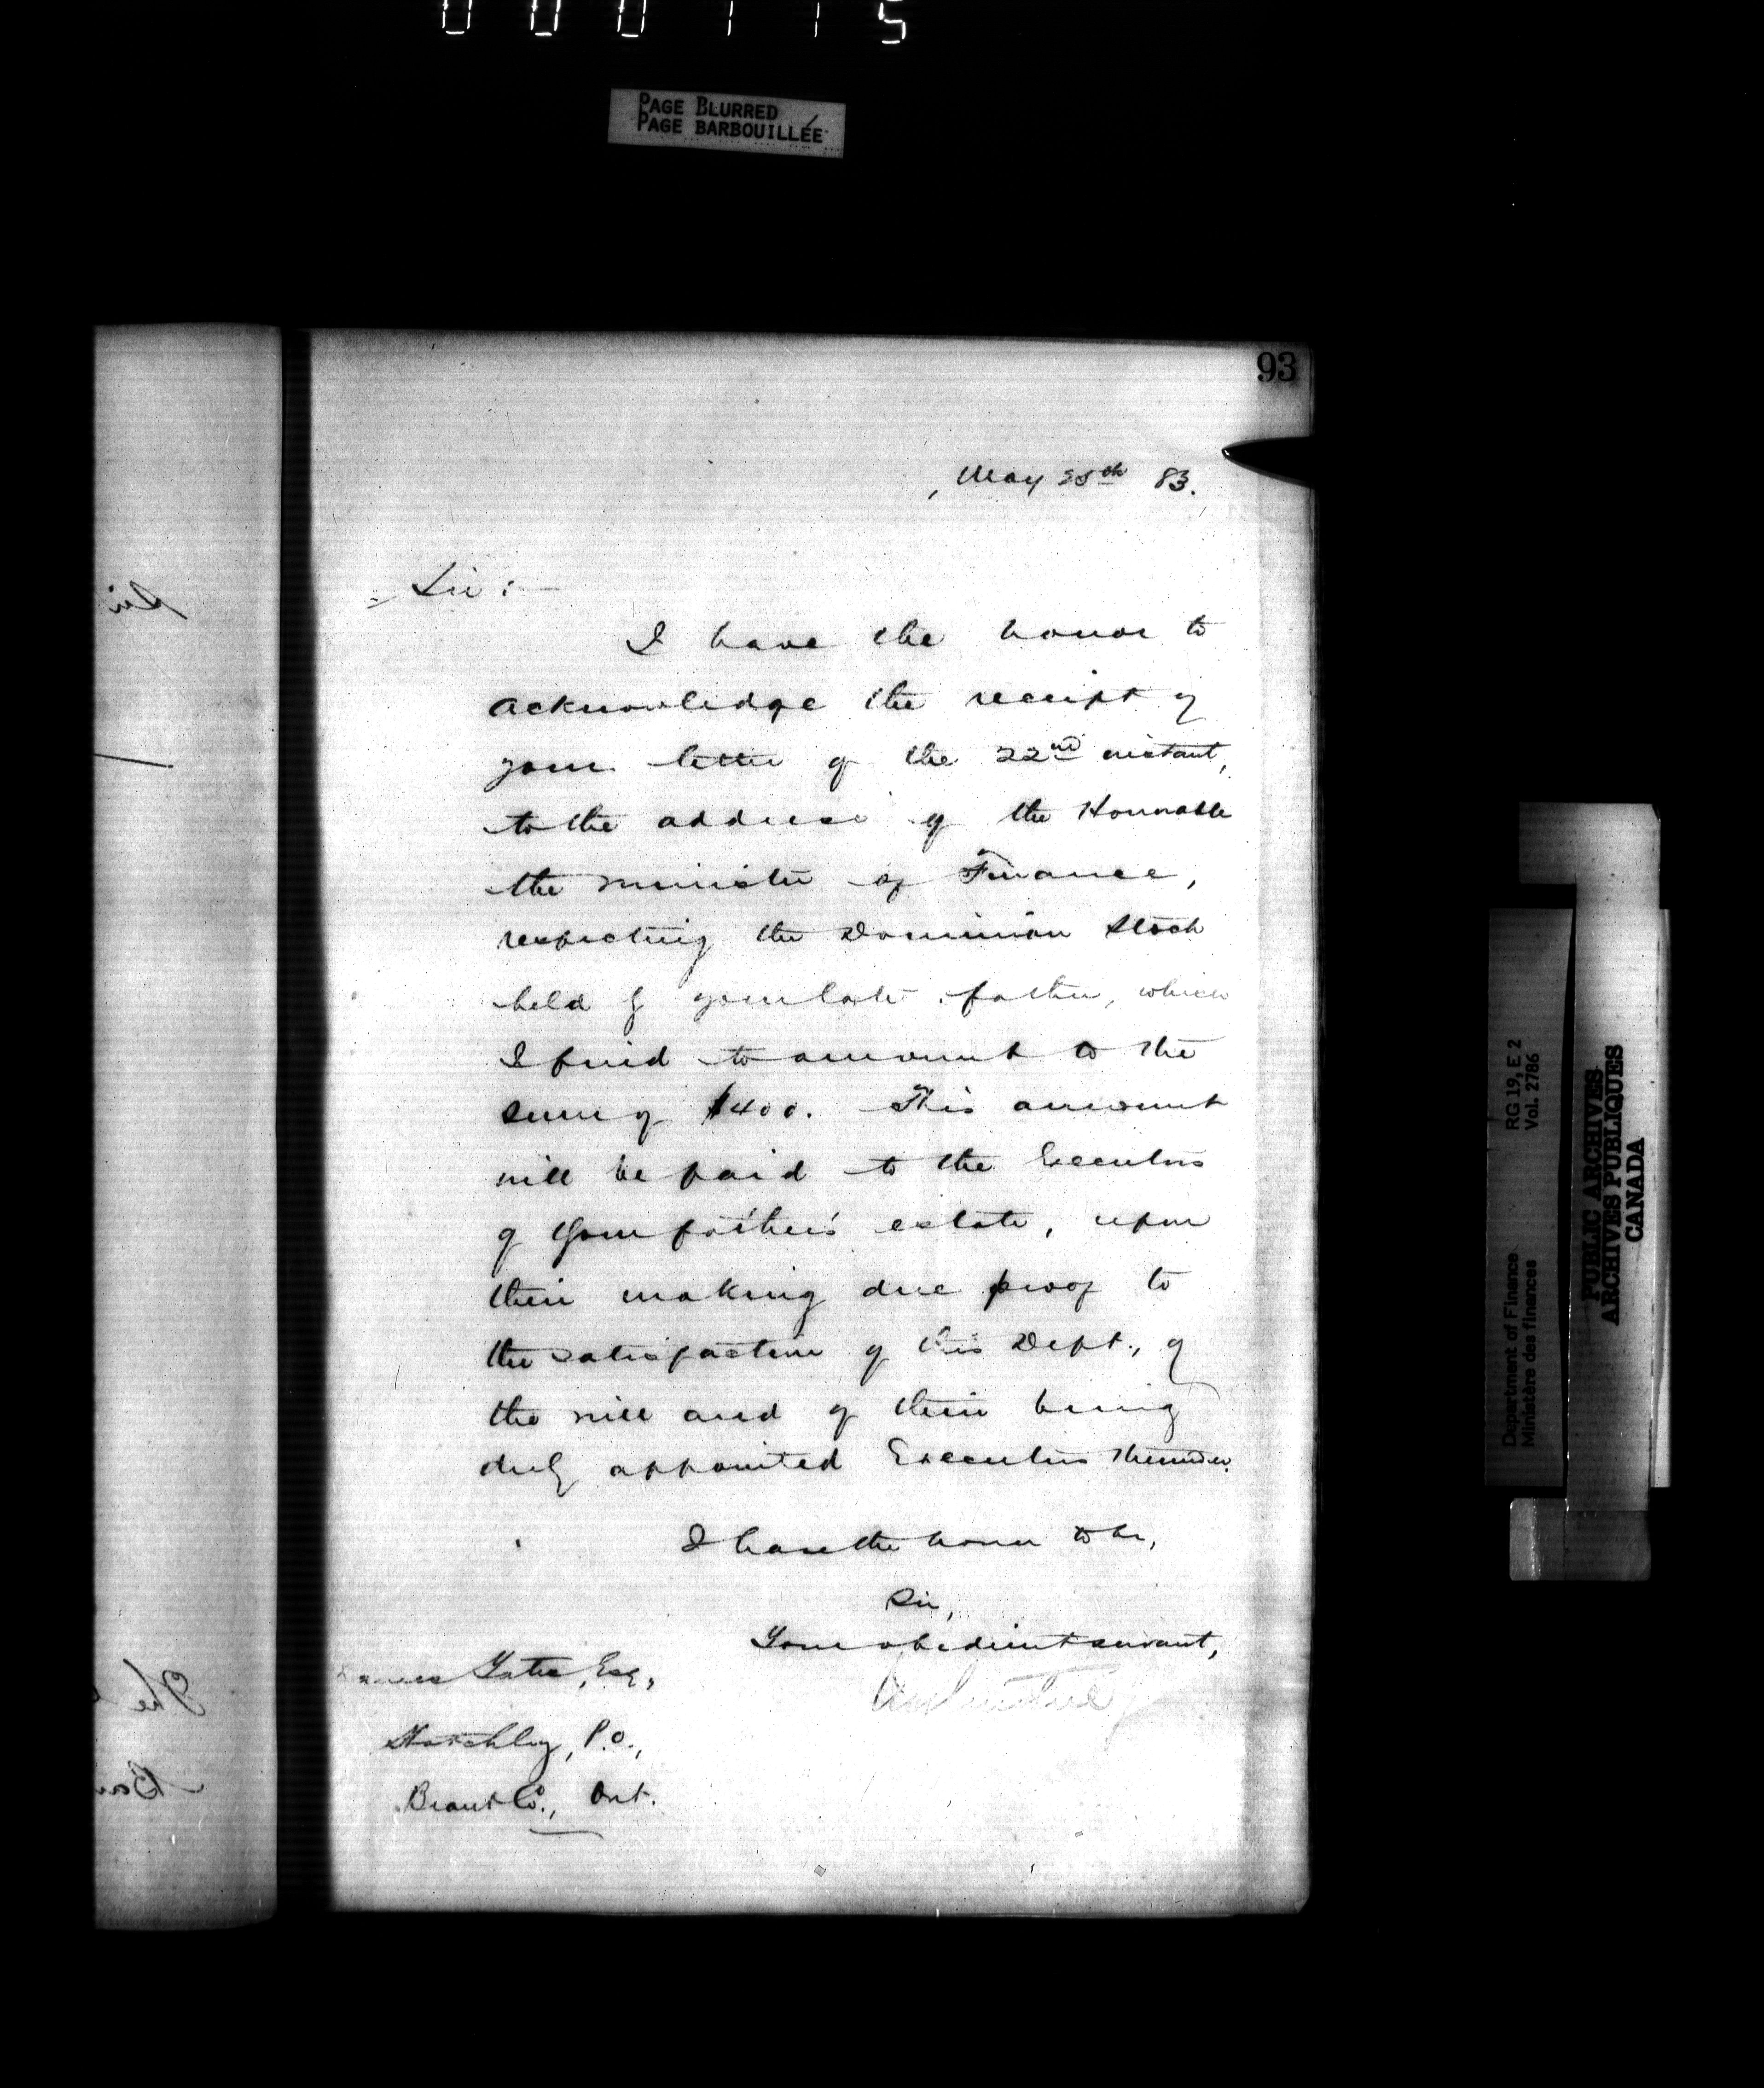 000115
PAGE BLURRED
PAGE BARBOUILLÉE
93
May 25th 83.
Sir:
I have the honor to
acknowledge the receipt of
your letter of the 22nd instant,
to the address of the Honorable
the Minister of Finance,
respecting the Dominion Stock
held by your late father, which
I find to amount to the
sum of $400. This amount
will be paid to the Executors
of your father's estate, upon
their making due proof to
the satisfaction of this Dept., of
the will and of their being
duly appointed Executors thereunder.
I have the honor to be,
Sir,
Your obedient servant,
Yates, Esq,
Hatchley, P.O.,
Brant Co., Ont.
Sir
The
Department of Finance RG 19, E 2
Ministère des finances Vol. 2786
PUBLIC ARCHIVES
ARCHIVES PUBLIQUES
CANADA